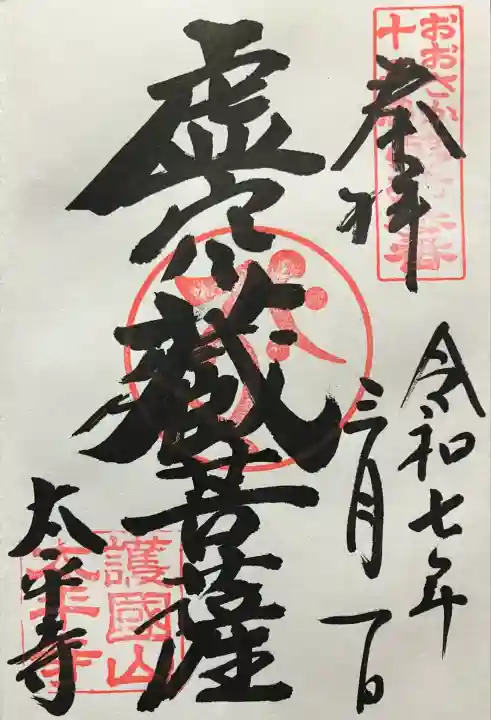 おおさか
奉拝
令和七年
三月一日
虚空蔵菩薩
護國山
太平寺
太平寺